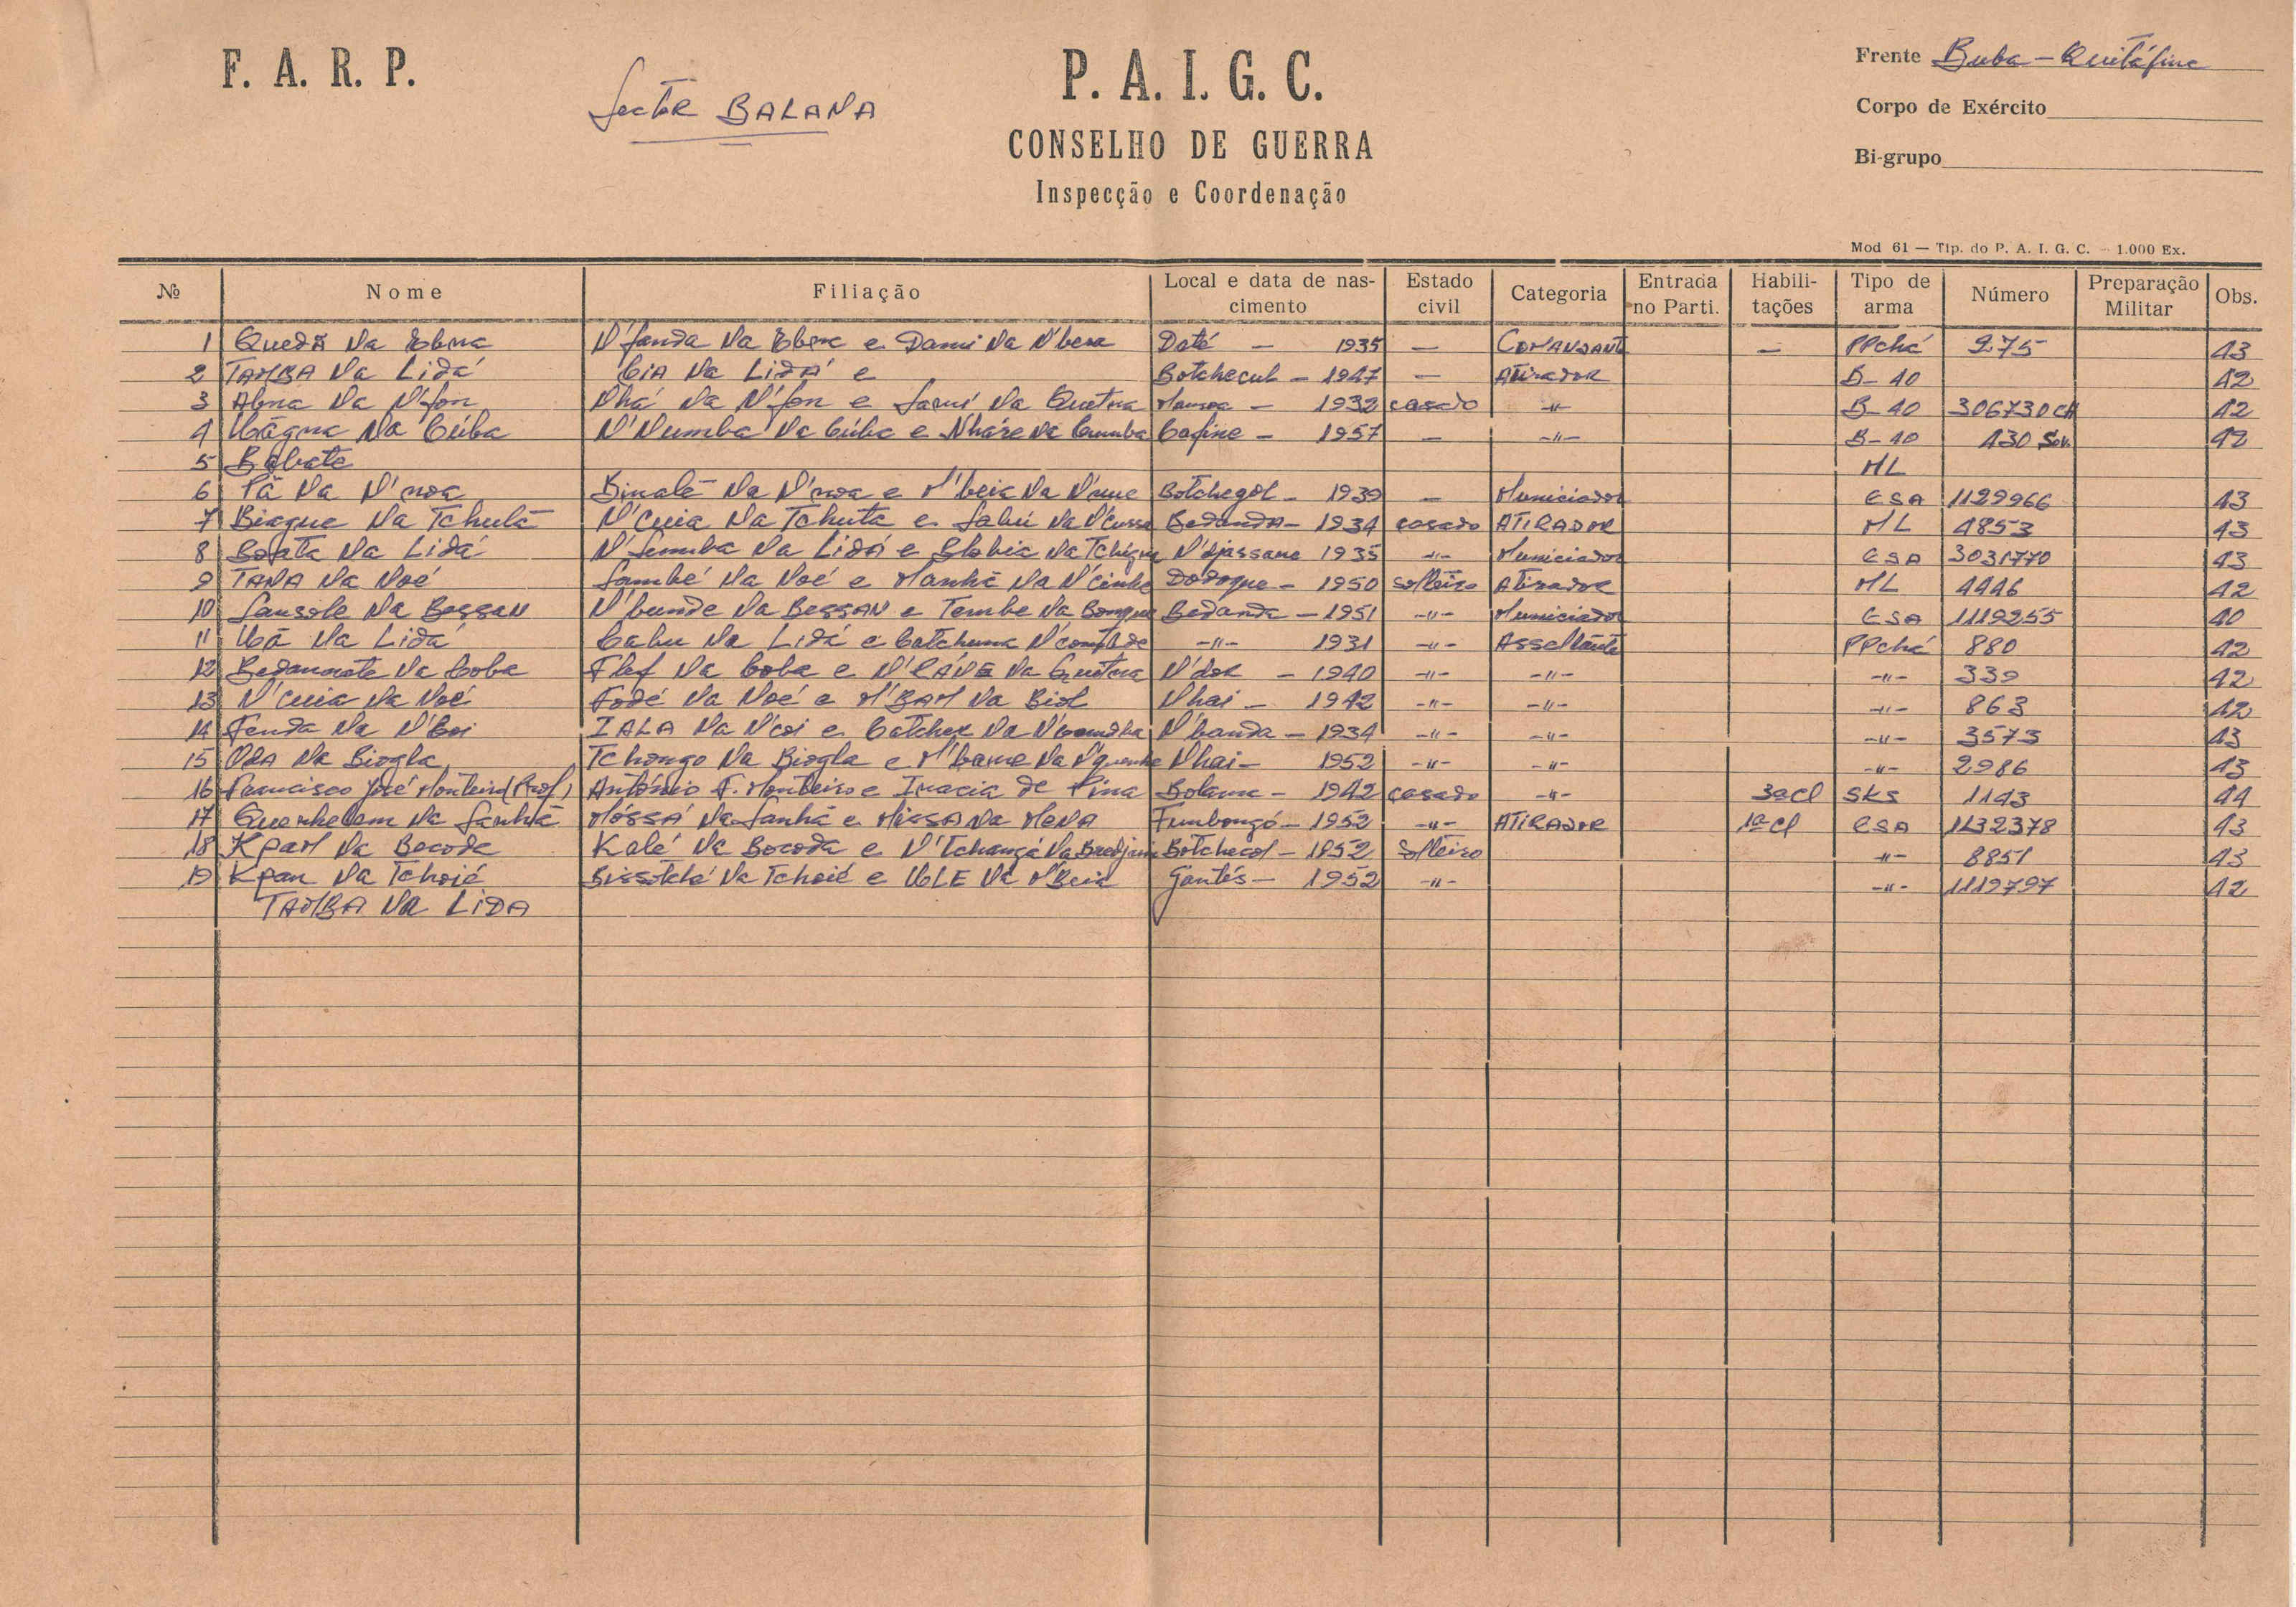 F. A. R. P.
Sector BALANA
P. A. I. G. C.
CONSELHO DE GUERRA
Inspecção e Coordenação
Frente Buba - Quitáfine
Corpo de Exército
Bi-grupo
Mod 61 — Tip. do P. A. I. G. C. - 1.000 Ex.
№ Nome Filiação Local e data de nascimento Estado civil Categoria Entrada no Parti. Habilitações Tipo de arma Número Preparação Militar Obs.
1 Quedã Na Ebna N'fanda Na e Dami Na N'bera Daté - 1935 — COMANDANTE — PPchá 275 43
2 TAMBA Na Lidá CIA Na LIDÁ e Botchecul - 1947 — Atirador B-10 42
3 Abna Na N'fon Nhá Na N'fon e Sami Na Quetna Mansoa - 1932 casado -"- B-10 306730CH 42
4 Na Cúba N'Numba Na Cúba e Nháre Na Cumba Cafine - 1957 — -"- B-10 130 Sov. 42
5 Babate ML
6 Pã Na N'noa Binalé Na N'noa e M'beia Na N'ume Botchegol - 1939 — Municiador CSA 1129966 43
7 Biague Na Tchutã N'Cuia Na Tchuta e Sabú Na N'Cussa Bedanda - 1934 casado ATIRADOR ML 4853 43
8 Boata Na Lidá Na Lidá e Na N'djassane 1935 -"- Municiador CSA 3031770 43
9 TANA Na Noé Sambé Na Noé e Manhã Na Dodoque - 1950 solteiro Atirador ML 4446 42
10 Sansole Na Bessan N'bunde Na BESSAN e Tembe Na Bongue Bedanda - 1951 -"- Municiador CSA 1119255 40
11 Uã Na Lidá Cabu Na Lidá e Catchuma -"- 1931 -"- Assaltante PPchá 880 42
12 Na Coba Flef Na Coba e Na Quetna N'dor - 1940 -"- -"- -"- 339 42
13 N'Cuia Na Noé Fodé Na Noé e M'BAM Na Biol Nhai - 1942 -"- -"- -"- 863 42
14 Fenda Na N'Coi IALA Na N'coi e Catcher Na N'banda - 1934 -"- -"- -"- 3573 43
15 ODA Na Biogha Tchongo Na Biogha e M'bame Na Nhai - 1952 -"- -"- -"- 2986 43
16 Francisco José Monteiro (Prof.) António F. Monteiro e Inacia de Pina Bolama - 1942 casado -"- 3ªcl SKS 1143 44
17 Quenhelem Na Sanhá MÓSSÁ Na Sanhã e MISSA Na MENA Fumbongó - 1952 -"- ATIRADOR 1ªcl CSA 1132378 43
18 KPAM Na Bocoda Kalé Na Bocoda e N'Tchangá Na Botchecol - 1952 Solteiro -"- 8851 43
19 Kpan Na Tchoié Bissotché Na Tchoié e ULE Na M'Beia Gantés - 1952 -"- -"- 1119797 42
TAMBA Na LIDA